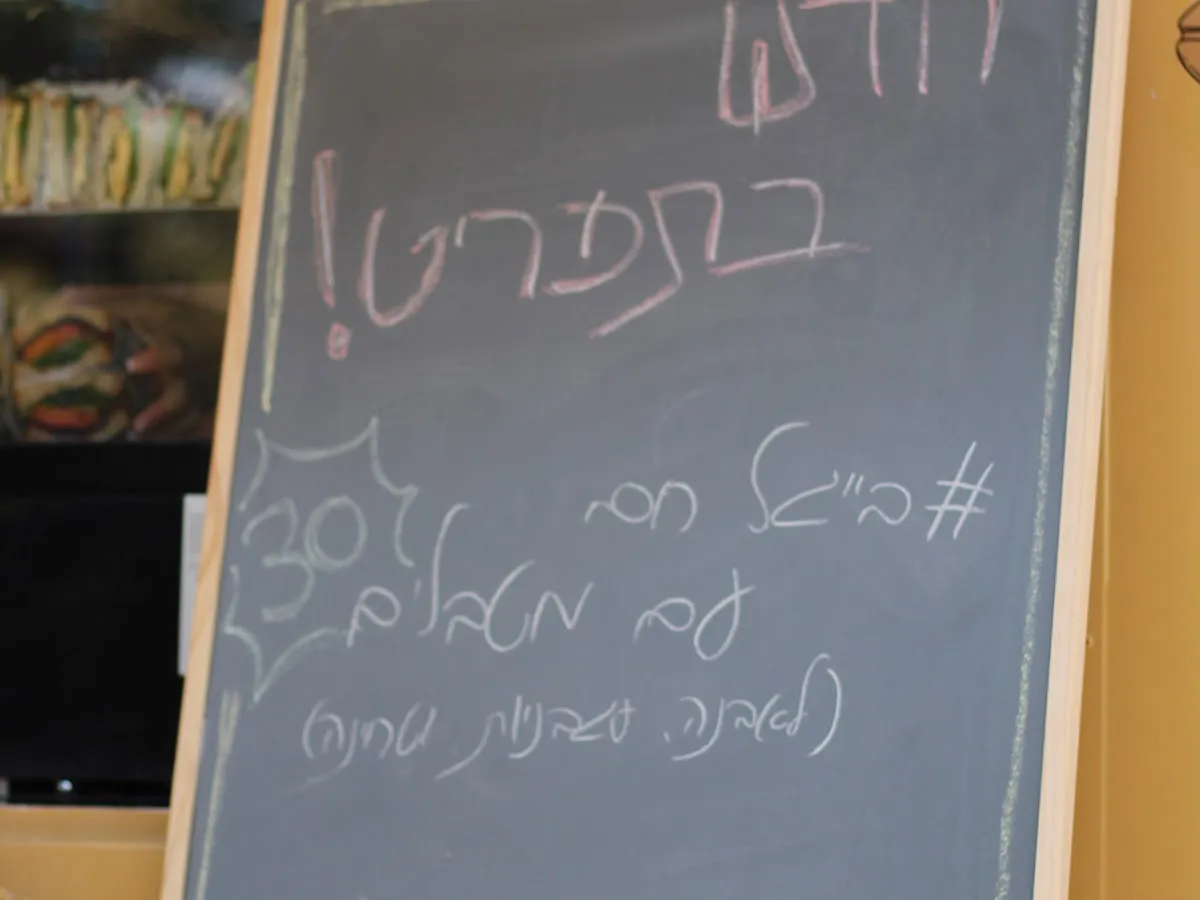 חדש
בתפריט!
#בייגל חם
30
עם מטבלים
(לאבנה, עגבניות, טחינה)